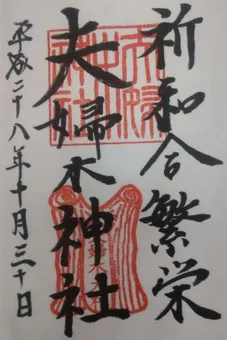 祈和合繁栄
夫婦木神社
平成二十八年十月三十日